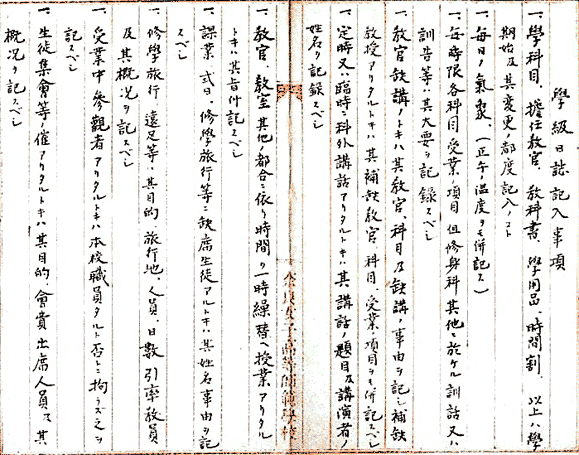 學級日誌記入事項
一、學科目、擔任教官、教科書、學用品、時間割、以上ハ學
期始及其変更ノ都度記入ノコト
一、毎日ノ氣象、(正午ノ温度ヲモ併記ス)
一、毎時限各科目受業ノ項目但修身科其他ニ於ケル訓話又ハ
訓告等ハ其大要ヲ記録スベシ
一、教官缺講ノトキハ其教官、科目及缺講ノ事由ヲ記シ補缺
教授アリタルトキハ其補缺教官、科目、受業ノ項目ヲモ併記スベシ
一、定時又ハ臨時ニ科外講話アリタルトキハ其講話ノ題目及講演者ノ
姓名ヲ記録スベシ
奈良女子高等師範學校
一、教官、教室其他ノ都合ニ依リ時間ヲ一時繰替ヘ授業アリタル
トキハ其旨付記スベシ
一、課業、式日、修學旅行等ニ缺席生徒アルトキハ其姓名事由ヲ記
スベシ
一、修學旅行、遠足等ハ其目的、旅行地、人員、日數、引率教員
及其概況ヲ記スベシ
一、受業中參觀者アリタルトキハ本校職員タルト否トニ拘ラズ之ヲ
記スベシ
一、生徒集會等ノ催アリタルトキハ其目的、會費出席人員及其
概況ヲ記スベシ